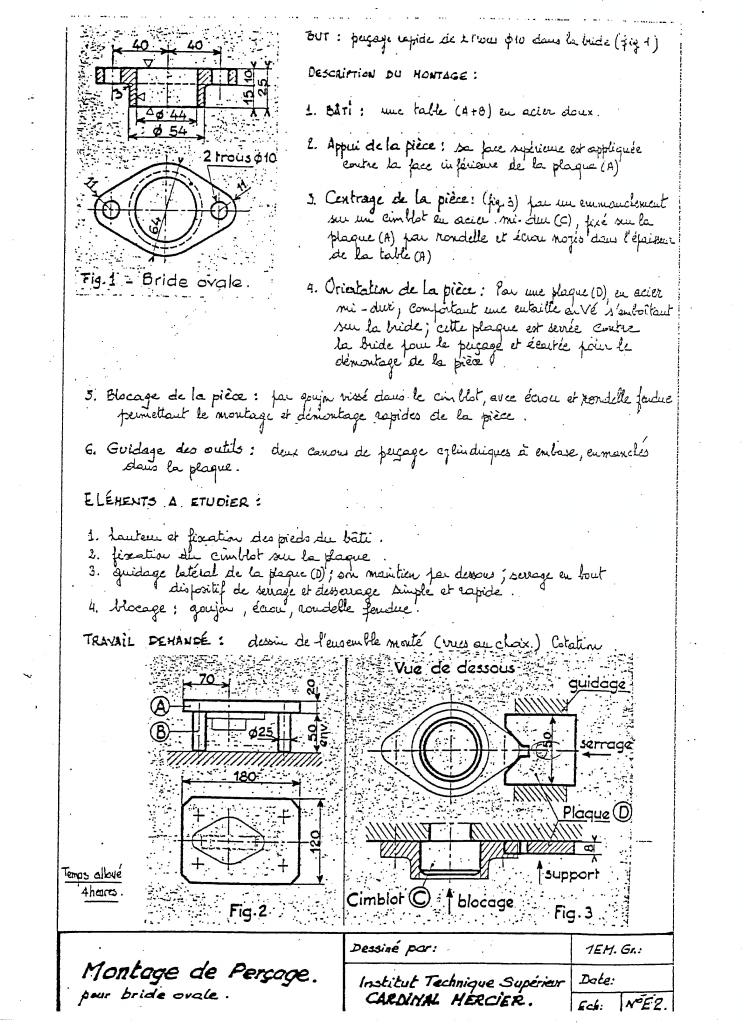 BUT : perçage rapide de 2 trous ϕ10 dans la bride (fig 1)
DESCRIPTION DU MONTAGE :
1. BÂTI : une table (A+B) en acier doux.
2. Appui de la pièce : sa face supérieure est appliquée
contre la face inférieure de la plaque (A)
3. Centrage de la pièce : (fig. 3) par un emmanchement
sur un cimblot en acier mi-dur (C), fixé sur la
plaque (A) par rondelle et écrou noyés dans l'épaisseur
de la table (A)
4. Orientation de la pièce : Par une plaque (D), en acier
mi-dur, comportant une entaille en Vé s'emboîtant
sur la bride ; cette plaque est serrée contre
la bride pour le perçage et écartée pour le
démontage de la pièce.
40 40
10
15
25
3
ϕ 44
ϕ 54
2 trous ϕ10
11
11
64
Fig.1 - Bride ovale.
5. Blocage de la pièce : par goujon vissé dans le cimblot, avec écrou et rondelle fendue
permettant le montage et démontage rapides de la pièce.
6. Guidage des outils : deux canons de perçage cylindriques à embase, emmanchés
dans la plaque.
ELÉMENTS A ETUDIER :
1. hauteur et fixation des pieds du bâti.
2. fixation du cimblot sur la plaque.
3. guidage latéral de la plaque (D) ; son maintien par dessous ; serrage en bout
dispositif de serrage et desserrage simple et rapide.
4. blocage : goujon, écrou, rondelle fendue.
TRAVAIL DEMANDÉ : dessin de l'ensemble monté (vues au choix.) Cotation
70
20
A
B
ϕ25
50 env.
180
120
Fig.2
Temps alloué
4 heures.
Vue de dessous
guidage
50
serrage
Plaque D
8
support
Cimblot C
blocage
Fig. 3
Montage de Perçage.
pour bride ovale.
Dessiné par:
1EM. Gr.:
Institut Technique Supérieur
CARDINAL MERCIER.
Date:
Ech:
N°E2.